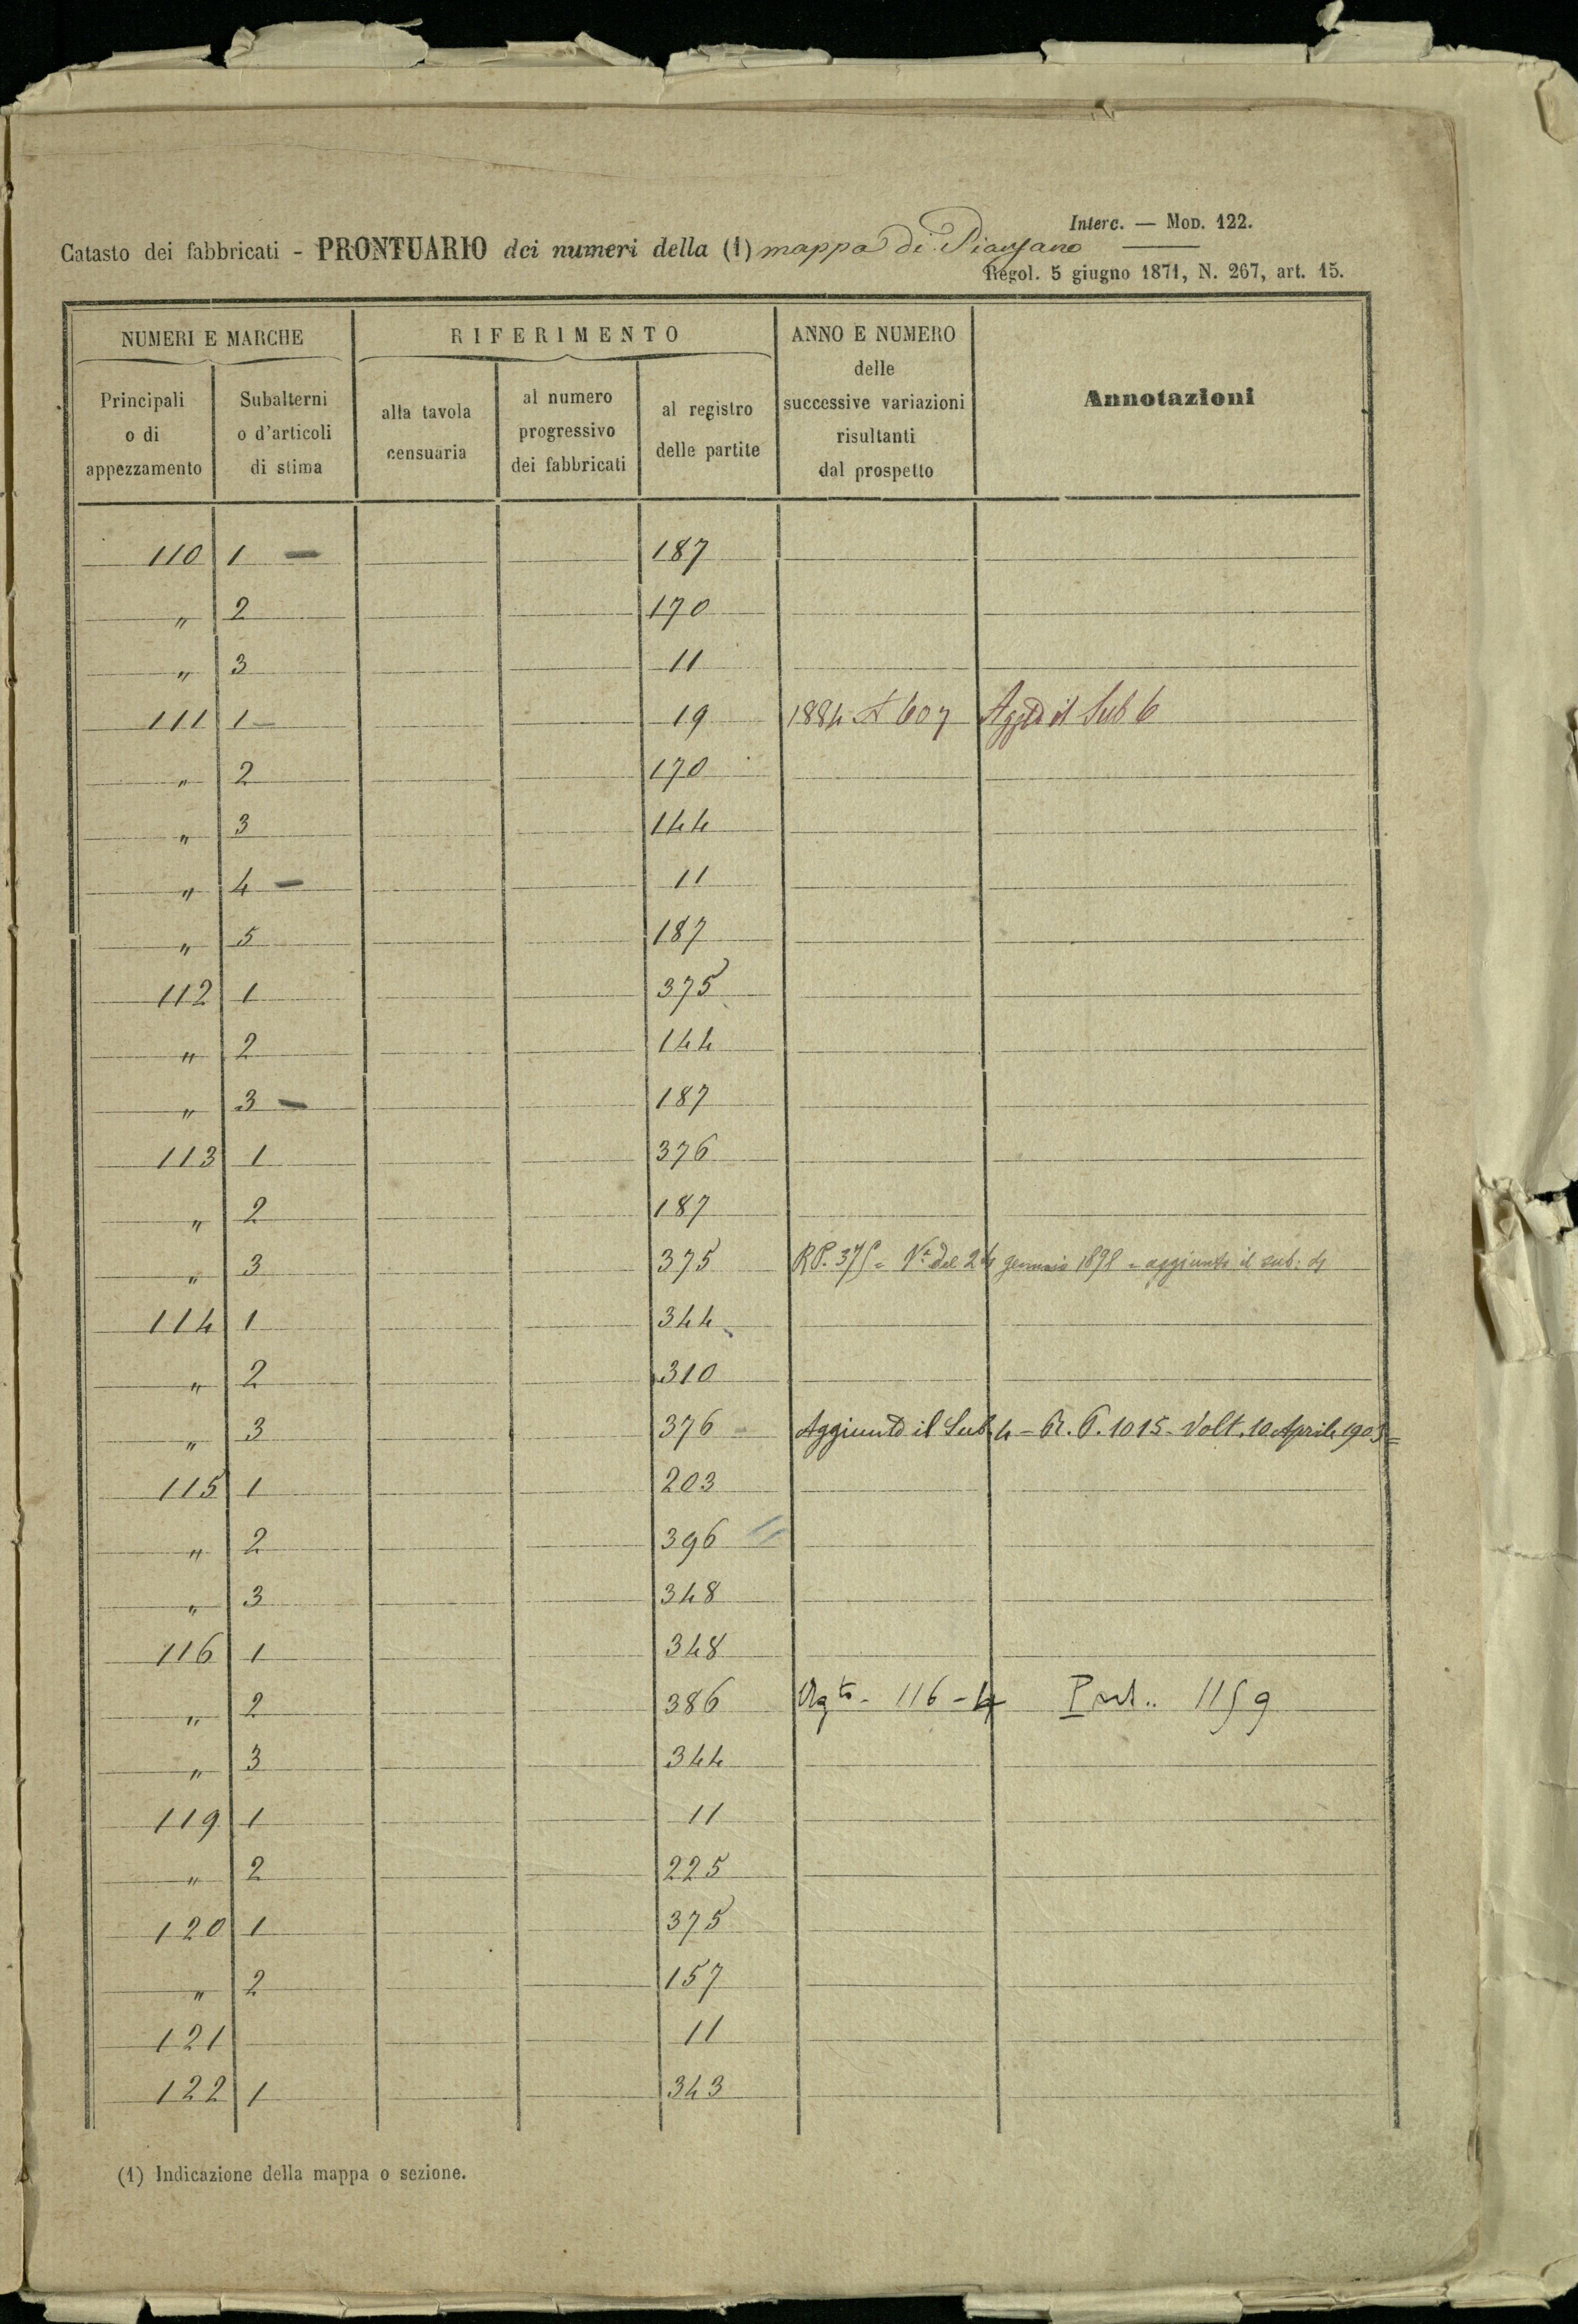 Interc. — MOD. 122.
Catasto dei fabbricati - PRONTUARIO dei numeri della (1) mappa di Piansano
Regol. 5 giugno 1871, N. 267, art. 15.
NUMERI E MARCHE RIFERIMENTO ANNO E NUMERO delle successive variazioni risultanti dal prospetto Annotazioni
Principali o di appezzamento Subalterni o d'articoli di stima alla tavola censuaria al numero progressivo dei fabbricati al registro delle partite
110 1 — 187
" 2 170
" 3 11
111 1 — 19 1884 607 Aggto il Sub 6
" 2 170
" 3 144
" 4 — 11
" 5 187
112 1 375
" 2 144
" 3 — 187
113 1 376
" 2 187
" 3 375 RP. 375 = Va del 24 gennaio 1898 = aggiunto il sub. 4
114 1 344
" 2 310
" 3 376 Aggiunto il Sub. 4 - R. P. 1015 - Volt. 10 Aprile 1903 =
115 1 203
" 2 396
" 3 348
116 1 348
" 2 386 Agto - 116 - 4 Part.. 1159
" 3 344
119 1 11
" 2 225
120 1 375
" 2 157
121 11
122 1 343
(1) Indicazione della mappa o sezione.